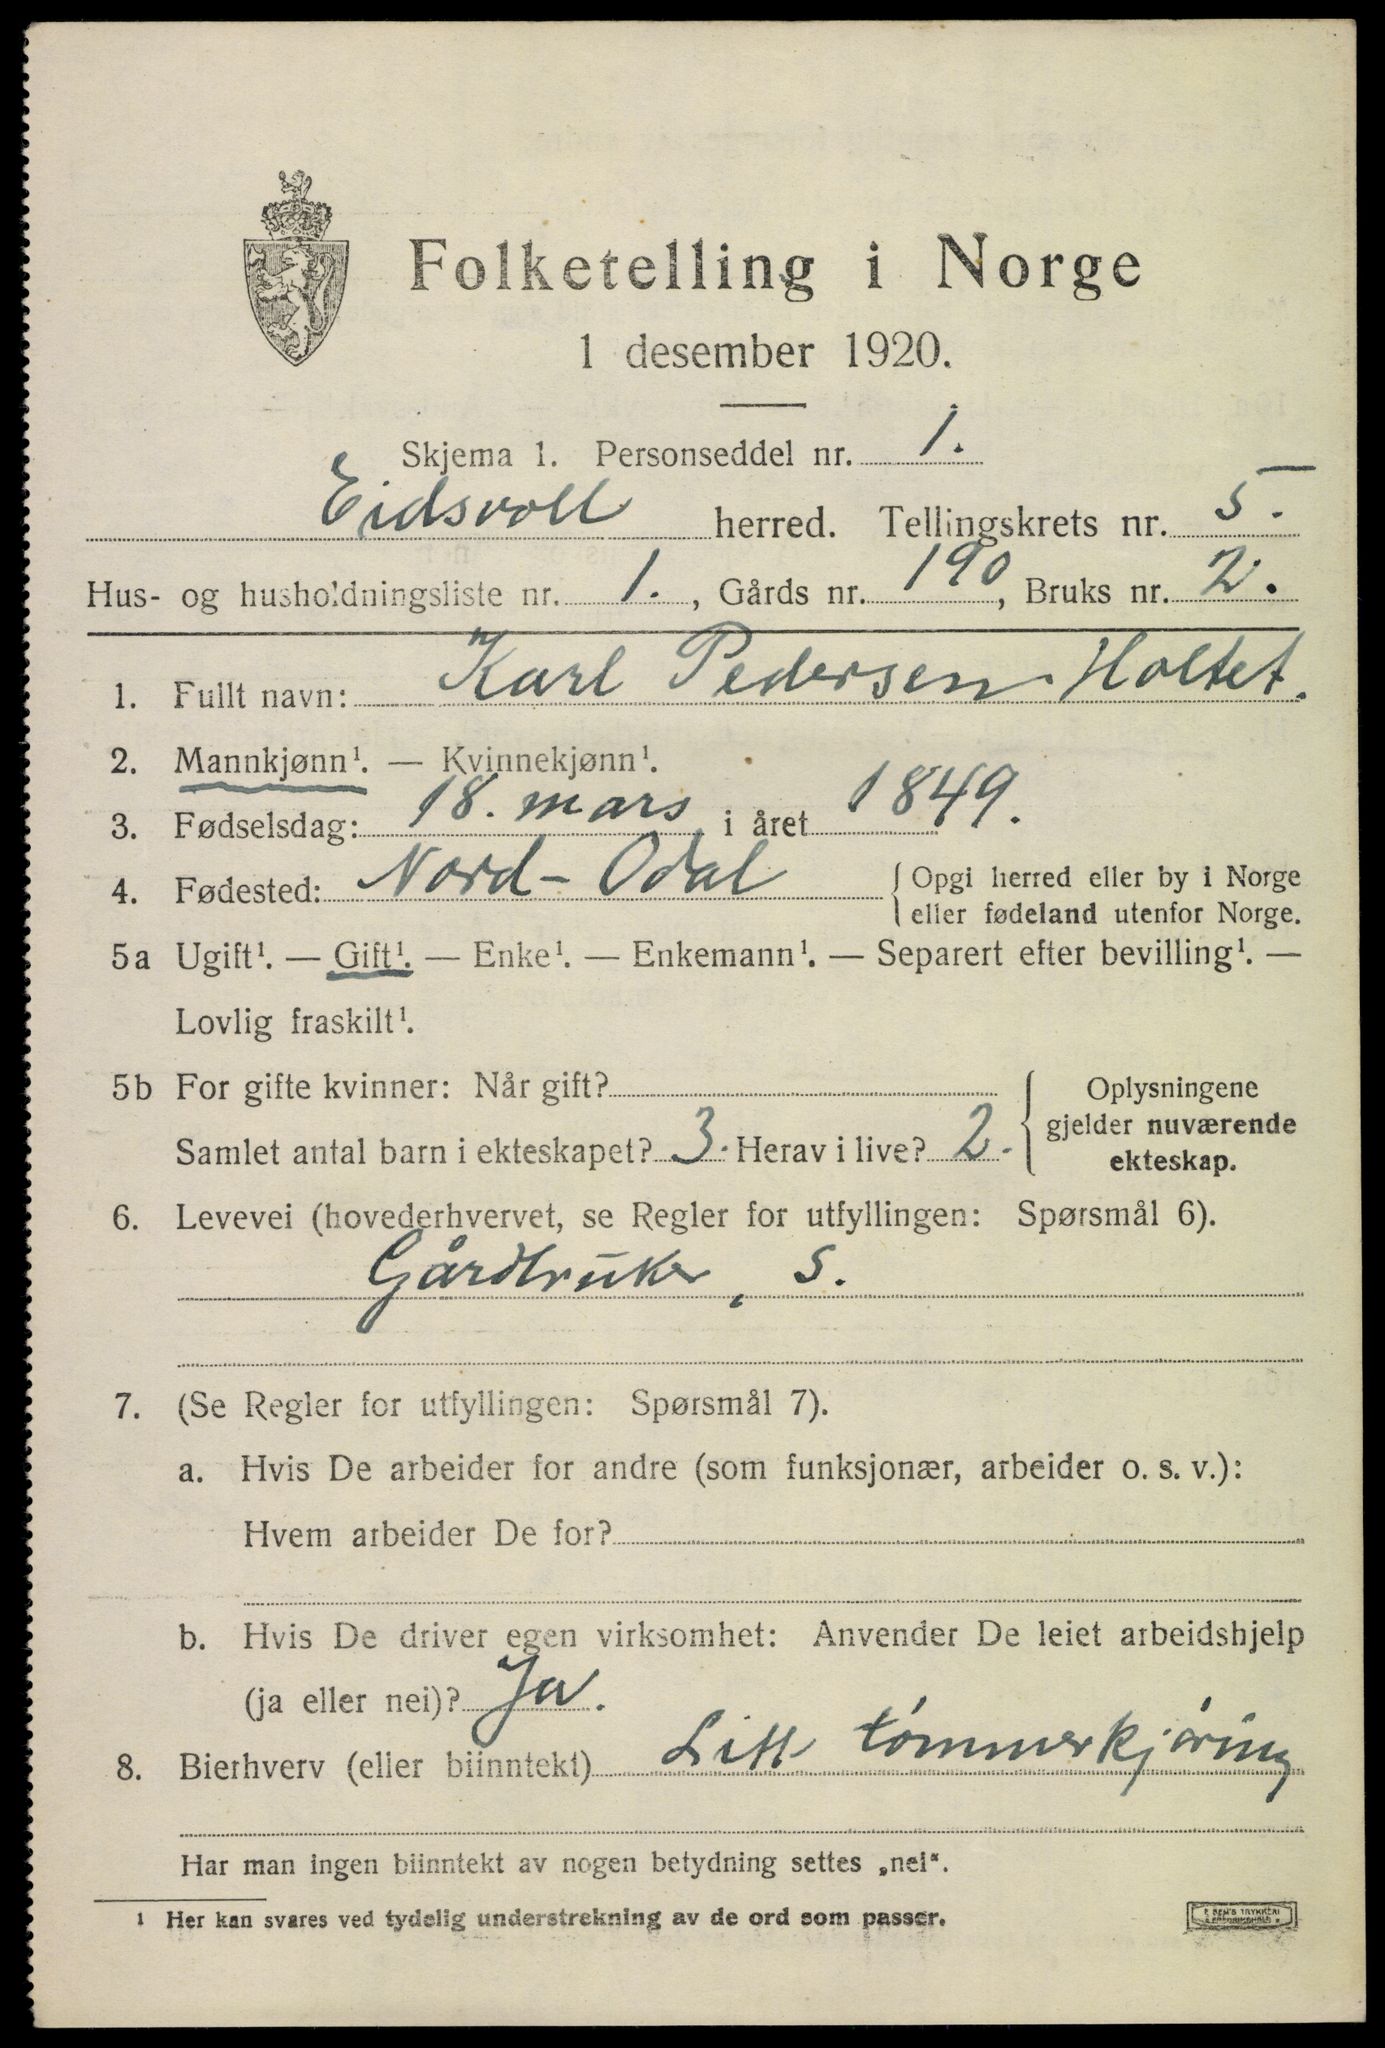 Folketelling i Norge
1 desember 1920.
Skjema 1. Personseddel nr. 1.
Eidsvoll herred. Tellingskrets nr. 5.
Hus- og husholdningsliste nr. 1., Gårds nr. 190, Bruks nr. 2.
1. Fullt navn: Karl Pedersen Holtet.
2. Mannkjønn¹. — Kvinnekjønn¹.
3. Fødselsdag: 18. mars i året 1849.
4. Fødested: Nord-Odal { Opgi herred eller by i Norge
eller fødeland utenfor Norge.
5a Ugift¹. — Gift¹. — Enke¹. — Enkemann¹. — Separert efter bevilling¹. —
Lovlig fraskilt¹.
5b For gifte kvinner: Når gift?
Samlet antal barn i ekteskapet? 3. Herav i live? 2.
{ Oplysningene
gjelder nuværende
ekteskap.
6. Levevei (hovederhvervet, se Regler for utfyllingen: Spørsmål 6).
Gårdbruker, s.
7. (Se Regler for utfyllingen: Spørsmål 7).
a. Hvis De arbeider for andre (som funksjonær, arbeider o. s. v.):
Hvem arbeider De for?
b. Hvis De driver egen virksomhet: Anvender De leiet arbeidshjelp
(ja eller nei)? Ja.
8. Bierhverv (eller biinntekt) Litt tømmerkjøring
Har man ingen biinntekt av nogen betydning settes „nei“.
¹ Her kan svares ved tydelig understrekning av de ord som passer.